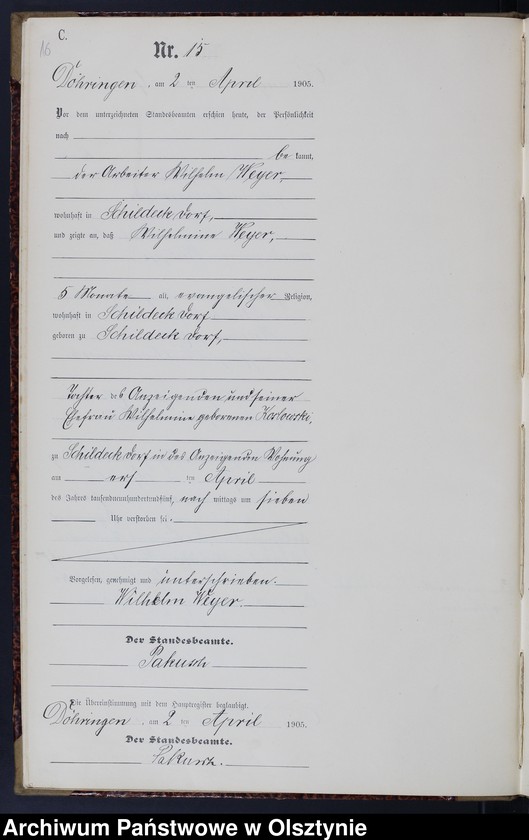 16
C.
Nr. 15
Döhringen, am 2 ten April 1905.
Vor dem unterzeichneten Standesbeamten erschien heute, der Persönlichkeit
nach
be kannt,
der Arbeiter Wilhelm Weyer,
wohnhaft in Schildeck Dorf,
und zeigte an, daß Wilhelmine Weyer,
5 Monate alt, evangelischer Religion,
wohnhaft in Schildeck Dorf
geboren zu Schildeck Dorf,
Tochter des Anzeigenden und seiner
Ehefrau Wilhelmine geborenen
zu Schildeck Dorf in des Anzeigenden Wohnung
am ers ten April
des Jahres tausendneunhundertundfünf, nach mittags um sieben
Uhr verstorben sei.
Vorgelesen, genehmigt und unterschrieben.
Wilhelm Weyer.
Der Standesbeamte.
Pakusch
Die Übereinstimmung mit dem Hauptregister beglaubigt.
Döhringen, am 2 ten April 1905.
Der Standesbeamte.
Pakusch.
Archiwum Państwowe w Olsztynie